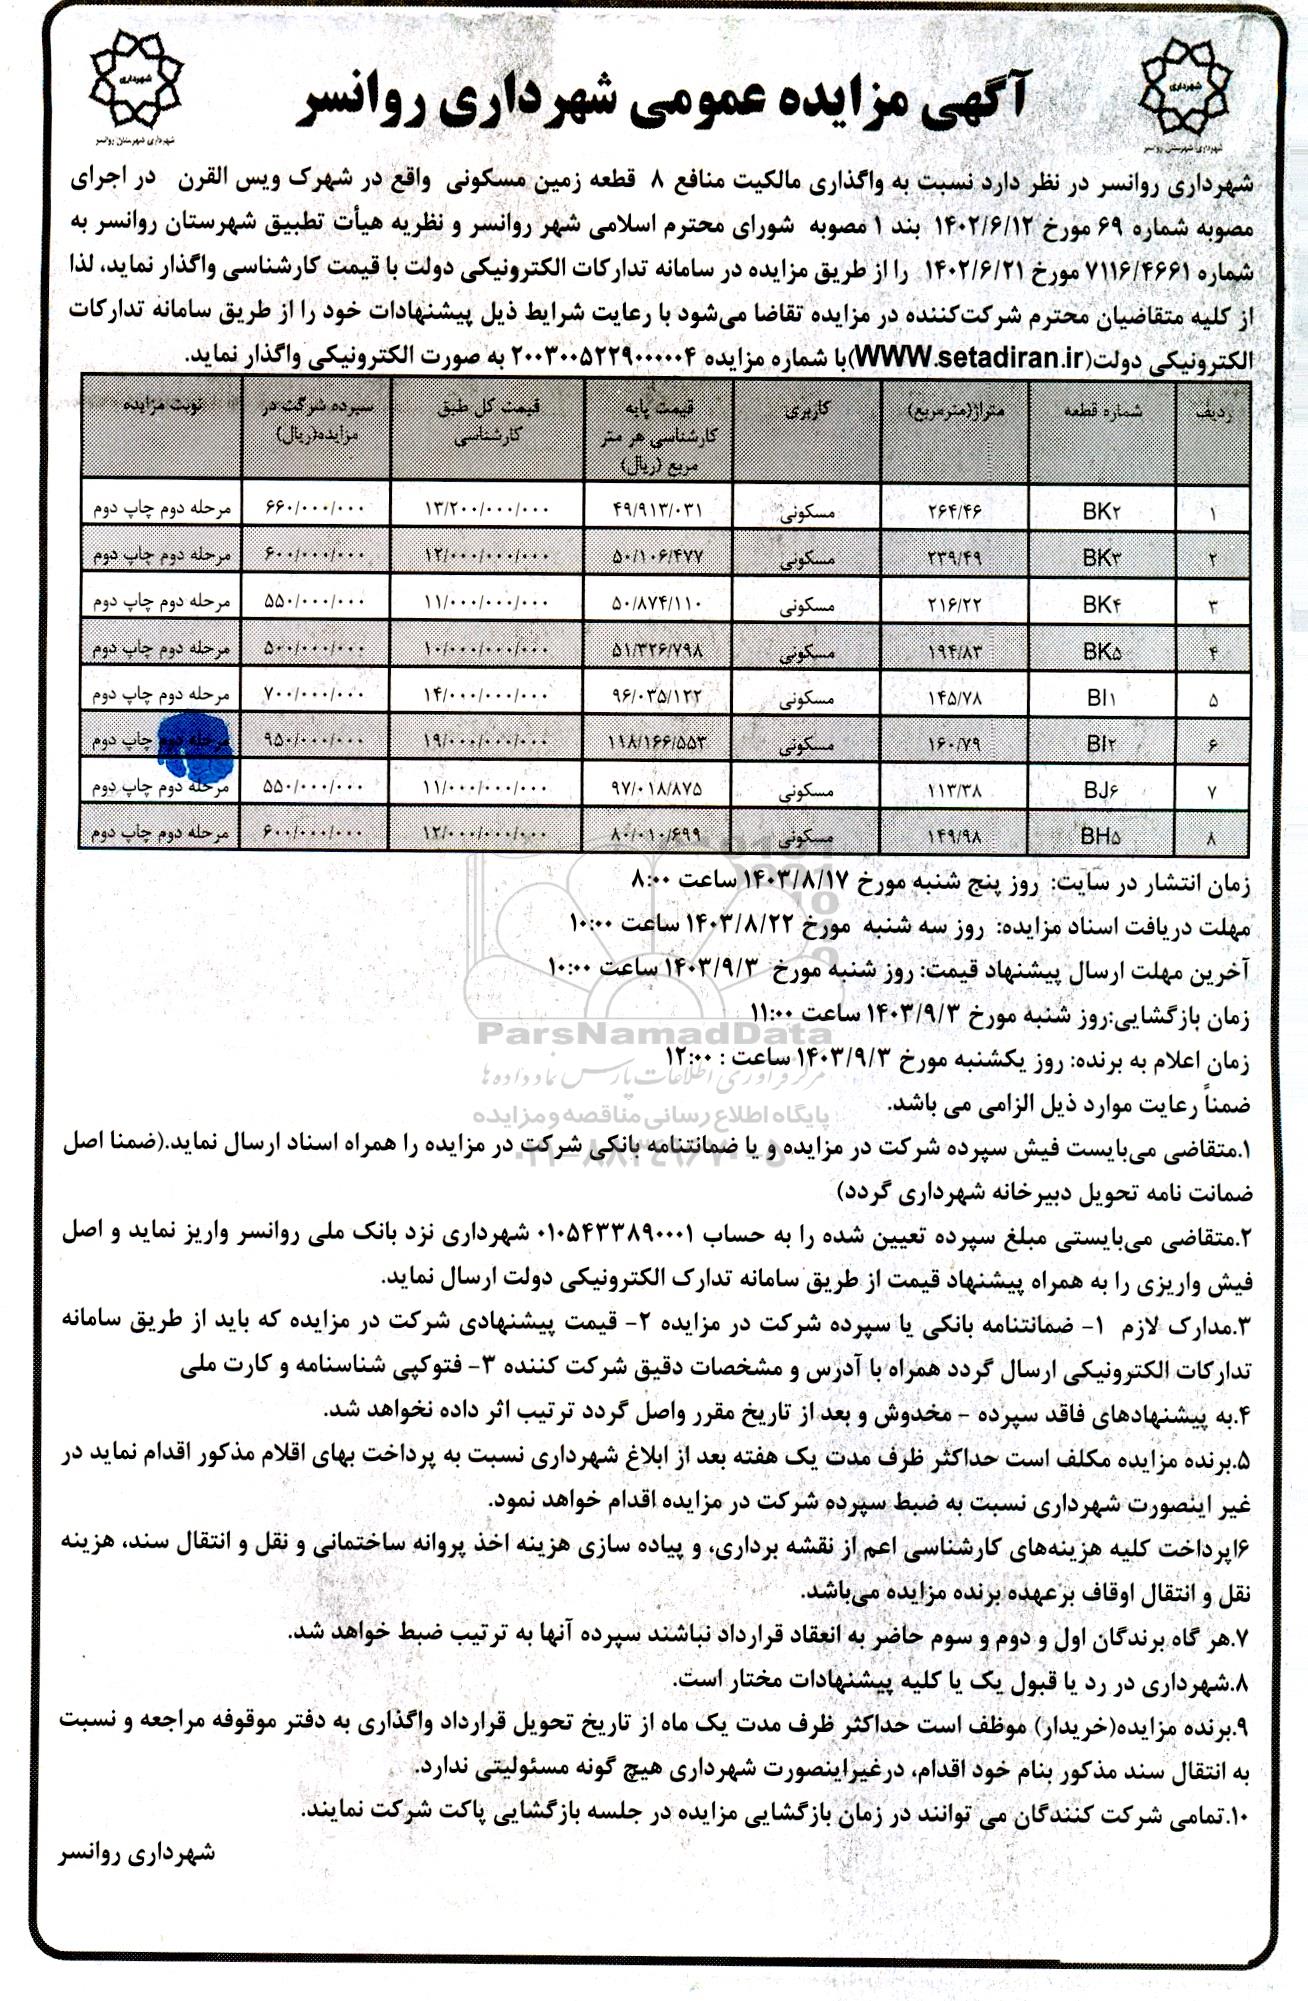 شهرداری
شهرداری شهرستان روانسر
شهرداری
شهرداری شهرستان روانسر
آگهی مزایده عمومی شهرداری روانسر
شهرداری روانسر در نظر دارد نسبت به واگذاری مالکیت منافع ۸ قطعه زمین مسکونی واقع در شهرک ویس القرن در اجرای
مصوبه شماره ۶۹ مورخ ۱۴۰۲/۶/۱۲ بند ۱ مصوبه شورای محترم اسلامی شهر روانسر و نظریه هیأت تطبیق شهرستان روانسر به
شماره ۷۱۱۶/۴۶۶۱ مورخ ۱۴۰۲/۶/۲۱ را از طریق مزایده در سامانه تدارکات الکترونیکی دولت با قیمت کارشناسی واگذار نماید، لذا
از کلیه متقاضیان محترم شرکت‌کننده در مزایده تقاضا می‌شود با رعایت شرایط ذیل پیشنهادات خود را از طریق سامانه تدارکات
الکترونیکی دولت(WWW.setadiran.ir)با شماره مزایده ۲۰۰۳۰۰۵۲۲۹۰۰۰۰۰۴ به صورت الکترونیکی واگذار نماید.
ردیف شماره قطعه متراژ(مترمربع) کاربری قیمت پایه کارشناسی هر متر مربع (ریال) قیمت کل طبق کارشناسی سپرده شرکت در مزایده(ریال) نوبت مزایده
۱ BK۲ ۲۶۴/۴۶ مسکونی ۴۹/۹۱۳/۰۳۱ ۱۳/۲۰۰/۰۰۰/۰۰۰ ۶۶۰/۰۰۰/۰۰۰ مرحله دوم چاپ دوم
۲ BK۳ ۲۳۹/۴۹ مسکونی ۵۰/۱۰۶/۴۷۷ ۱۲/۰۰۰/۰۰۰/۰۰۰ ۶۰۰/۰۰۰/۰۰۰ مرحله دوم چاپ دوم
۳ BK۴ ۲۱۶/۲۲ مسکونی ۵۰/۸۷۴/۱۱۰ ۱۱/۰۰۰/۰۰۰/۰۰۰ ۵۵۰/۰۰۰/۰۰۰ مرحله دوم چاپ دوم
۴ BK۵ ۱۹۴/۸۳ مسکونی ۵۱/۳۲۶/۷۹۸ ۱۰/۰۰۰/۰۰۰/۰۰۰ ۵۰۰/۰۰۰/۰۰۰ مرحله دوم چاپ دوم
۵ BI۱ ۱۴۵/۷۸ مسکونی ۹۶/۰۳۵/۱۲۲ ۱۴/۰۰۰/۰۰۰/۰۰۰ ۷۰۰/۰۰۰/۰۰۰ مرحله دوم چاپ دوم
۶ BI۲ ۱۶۰/۷۹ مسکونی ۱۱۸/۱۶۶/۵۵۳ ۱۹/۰۰۰/۰۰۰/۰۰۰ ۹۵۰/۰۰۰/۰۰۰ مرحله دوم چاپ دوم
۷ BJ۶ ۱۱۳/۳۸ مسکونی ۹۷/۰۱۸/۸۷۵ ۱۱/۰۰۰/۰۰۰/۰۰۰ ۵۵۰/۰۰۰/۰۰۰ مرحله دوم چاپ دوم
۸ BH۵ ۱۴۹/۹۸ مسکونی ۸۰/۰۱۰/۶۹۹ ۱۲/۰۰۰/۰۰۰/۰۰۰ ۶۰۰/۰۰۰/۰۰۰ مرحله دوم چاپ دوم
زمان انتشار در سایت: روز پنج شنبه مورخ ۱۴۰۳/۸/۱۷ ساعت ۸:۰۰
مهلت دریافت اسناد مزایده: روز سه شنبه مورخ ۱۴۰۳/۸/۲۲ ساعت ۱۰:۰۰
آخرین مهلت ارسال پیشنهاد قیمت: روز شنبه مورخ ۱۴۰۳/۹/۳ ساعت ۱۰:۰۰
زمان بازگشایی:روز شنبه مورخ ۱۴۰۳/۹/۳ ساعت ۱۱:۰۰
ParsNamadData
زمان اعلام به برنده: روز یکشنبه مورخ ۱۴۰۳/۹/۳ ساعت : ۱۲:۰۰
مرکز فرآوری اطلاعات پارس نماد داده‌ها
ضمناً رعایت موارد ذیل الزامی می باشد.
پایگاه اطلاع رسانی مناقصه و مزایده
۱.متقاضی می‌بایست فیش سپرده شرکت در مزایده و یا ضمانتنامه بانکی شرکت در مزایده را همراه اسناد ارسال نماید.(ضمنا اصل
۰۲۱-۸۸۳۴۹۶۷۰-۵
ضمانت نامه تحویل دبیرخانه شهرداری گردد)
۲.متقاضی می‌بایستی مبلغ سپرده تعیین شده را به حساب ۰۱۰۵۴۳۳۸۹۰۰۰۱ شهرداری نزد بانک ملی روانسر واریز نماید و اصل
فیش واریزی را به همراه پیشنهاد قیمت از طریق سامانه تدارک الکترونیکی دولت ارسال نماید.
۳.مدارک لازم ۱- ضمانتنامه بانکی یا سپرده شرکت در مزایده ۲- قیمت پیشنهادی شرکت در مزایده که باید از طریق سامانه
تدارکات الکترونیکی ارسال گردد همراه با آدرس و مشخصات دقیق شرکت کننده ۳- فتوکپی شناسنامه و کارت ملی
۴.به پیشنهادهای فاقد سپرده - مخدوش و بعد از تاریخ مقرر واصل گردد ترتیب اثر داده نخواهد شد.
۵.برنده مزایده مکلف است حداکثر ظرف مدت یک هفته بعد از ابلاغ شهرداری نسبت به پرداخت بهای اقلام مذکور اقدام نماید در
غیر اینصورت شهرداری نسبت به ضبط سپرده شرکت در مزایده اقدام خواهد نمود.
۶اپرداخت کلیه هزینه‌های کارشناسی اعم از نقشه برداری، و پیاده سازی هزینه اخذ پروانه ساختمانی و نقل و انتقال سند، هزینه
نقل و انتقال اوقاف برعهده برنده مزایده می‌باشد.
۷.هر گاه برندگان اول و دوم و سوم حاضر به انعقاد قرارداد نباشند سپرده آنها به ترتیب ضبط خواهد شد.
۸.شهرداری در رد یا قبول یک یا کلیه پیشنهادات مختار است.
۹.برنده مزایده(خریدار) موظف است حداکثر ظرف مدت یک ماه از تاریخ تحویل قرارداد واگذاری به دفتر موقوفه مراجعه و نسبت
به انتقال سند مذکور بنام خود اقدام، درغیراینصورت شهرداری هیچ گونه مسئولیتی ندارد.
۱۰.تمامی شرکت کنندگان می توانند در زمان بازگشایی مزایده در جلسه بازگشایی پاکت شرکت نمایند.
شهرداری روانسر